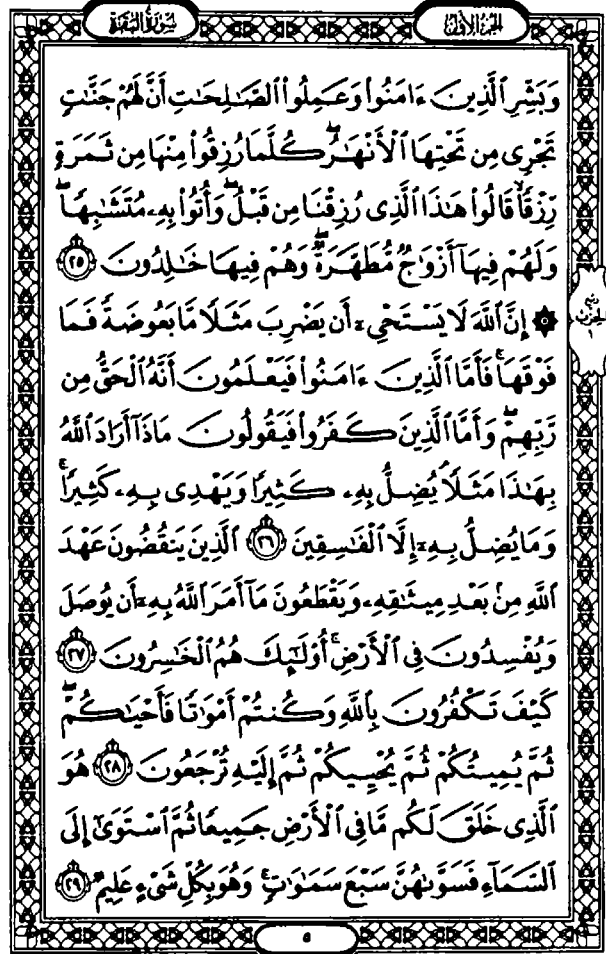 سُورَةُ البَقَرَةِ
الجُزْءُ الأَوَّلُ
وَبَشِّرِ ٱلَّذِينَ ءَامَنُوا۟ وَعَمِلُوا۟ ٱلصَّـٰلِحَـٰتِ أَنَّ لَهُمْ جَنَّـٰتٍ
تَجْرِى مِن تَحْتِهَا ٱلْأَنْهَـٰرُ ۖ كُلَّمَا رُزِقُوا۟ مِنْهَا مِن ثَمَرَةٍ
رِّزْقًا ۙ قَالُوا۟ هَـٰذَا ٱلَّذِى رُزِقْنَا مِن قَبْلُ ۖ وَأُتُوا۟ بِهِۦ مُتَشَـٰبِهًا ۖ
وَلَهُمْ فِيهَآ أَزْوَٰجٌ مُّطَهَّرَةٌ ۖ وَهُمْ فِيهَا خَـٰلِدُونَ ٢٥
۞ إِنَّ ٱللَّهَ لَا يَسْتَحْىِۦٓ أَن يَضْرِبَ مَثَلًا مَّا بَعُوضَةً فَمَا
فَوْقَهَا ۚ فَأَمَّا ٱلَّذِينَ ءَامَنُوا۟ فَيَعْلَمُونَ أَنَّهُ ٱلْحَقُّ مِن
رَّبِّهِمْ ۖ وَأَمَّا ٱلَّذِينَ كَفَرُوا۟ فَيَقُولُونَ مَاذَآ أَرَادَ ٱللَّهُ
بِهَـٰذَا مَثَلًا ۘ يُضِلُّ بِهِۦ كَثِيرًا وَيَهْدِى بِهِۦ كَثِيرًا ۚ
وَمَا يُضِلُّ بِهِۦٓ إِلَّا ٱلْفَـٰسِقِينَ ٢٦ ٱلَّذِينَ يَنقُضُونَ عَهْدَ
ٱللَّهِ مِنۢ بَعْدِ مِيثَـٰقِهِۦ وَيَقْطَعُونَ مَآ أَمَرَ ٱللَّهُ بِهِۦٓ أَن يُوصَلَ
وَيُفْسِدُونَ فِى ٱلْأَرْضِ ۚ أُو۟لَـٰٓئِكَ هُمُ ٱلْخَـٰسِرُونَ ٢٧
كَيْفَ تَكْفُرُونَ بِٱللَّهِ وَكُنتُمْ أَمْوَٰتًا فَأَحْيَـٰكُمْ ۖ
ثُمَّ يُمِيتُكُمْ ثُمَّ يُحْيِيكُمْ ثُمَّ إِلَيْهِ تُرْجَعُونَ ٢٨ هُوَ
ٱلَّذِى خَلَقَ لَكُم مَّا فِى ٱلْأَرْضِ جَمِيعًا ثُمَّ ٱسْتَوَىٰٓ إِلَى
ٱلسَّمَآءِ فَسَوَّىٰهُنَّ سَبْعَ سَمَـٰوَٰتٍ ۚ وَهُوَ بِكُلِّ شَىْءٍ عَلِيمٌ ٢٩
رُبْع
الحِزْب
١
٥